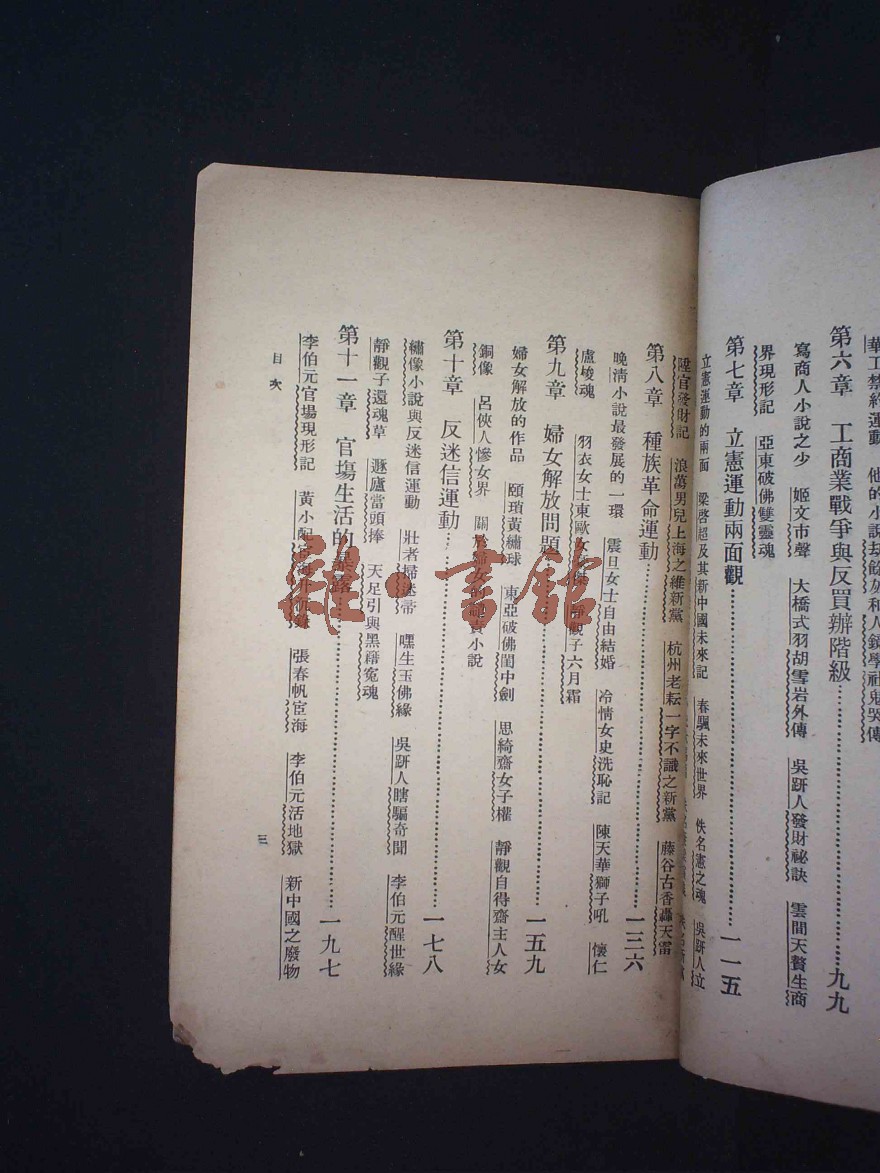 華工禁約運動　他的小說劫餘灰和人鏡學社鬼哭傳
第六章　工商業戰爭與反買辦階級…………九九
寫商人小說之少　姬文市聲　大橋式羽胡雪岩外傳　吳趼人發財祕訣　雲間天贅生商
界現形記　亞東破佛雙靈魂
第七章　立憲運動兩面觀…………一一五
立憲運動的兩面　梁啓超及其新中國未來記　春颿未來世界　佚名憲之魂　吳趼人立
陞官發財記　浪蕩男兒上海之維新黨　杭州老耘一字不識之新黨　藤谷古香轟天雷
第八章　種族革命運動…………一三六
晚清小說最發展的一環　震旦女士自由結婚　冷情女史洗恥記　陳天華獅子吼　懷仁
盧梭魂　羽衣女士東歐女豪傑　靜觀子六月霜
第九章　婦女解放問題…………一五九
婦女解放的作品　頤瑣黃繡球　東亞破佛閨中劍　思綺齋女子權　靜觀自得齋主人女
銅像　呂俠人慘女界　關於婦女的譴責小說
第十章　反迷信運動…………一七八
繡像小說與反迷信運動　壯者掃迷帚　嘿生玉佛緣　吳趼人瞎騙奇聞　李伯元醒世緣
靜觀子還魂草　遯廬當頭捧　天足引與黑籍寃魂
第十一章　官塲生活的暴露…………一九七
李伯元官場現形記　黃小配宦海　張春帆宦海　李伯元活地獄　新中國之廢物
目次
三
雜·書館